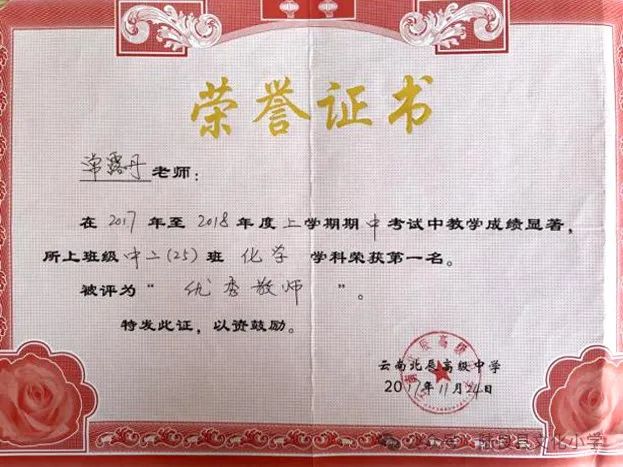 荣誉证书
常露丹老师：
在2017年至2018年度上学期期中考试中教学成绩显著，
所上班级中二(25)班 化学 学科荣获第一名。
被评为“优秀教师”。
特发此证，以资鼓励。
云南北辰高级中学
2017年11月24日